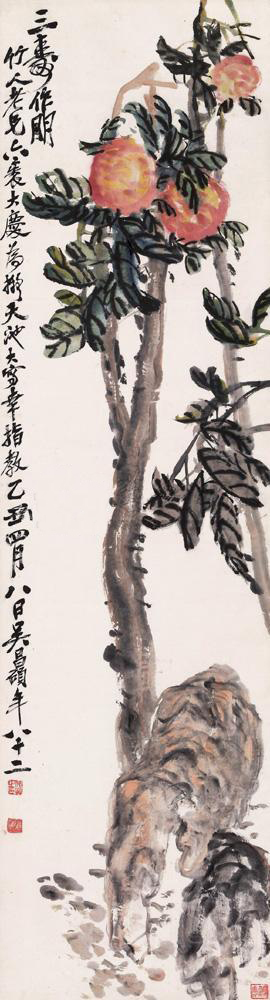 三壽作朋
竹人老兄六袠大慶為撫天池大寫幸指教乙丑四月八日吳昌碩年八十二